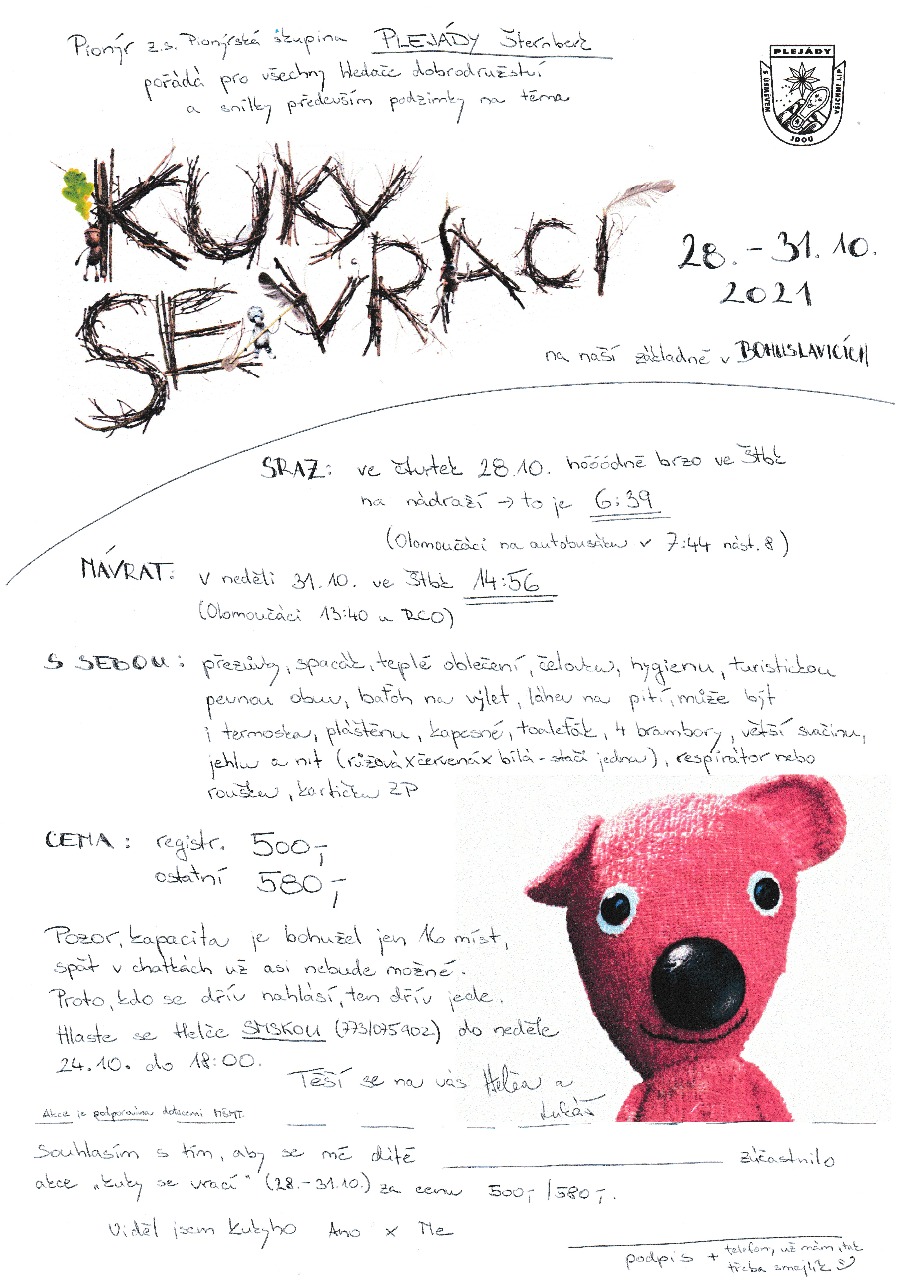 Pionýr z.s. Pionýrská skupina PLEJÁDY Šternberk
pořádá pro všechny hledače dobrodružství
a snílky především podzimky na téma
PLEJÁDY
S ÚSMĚVEM
JDOU
VŠICHNI LIP
KUKY
SE VRACÍ
28. - 31. 10.
2021
na naší základně v BOHUSLAVICÍCH
SRAZ: ve čtvrtek 28.10. hóóódně brzo ve Štbk
na nádraží → to je 6:39
(Olomoučáci na autobusáku v 7:44 nást. 8)
NÁVRAT: v neděli 31.10. ve Štbk 14:56
(Olomoučáci 13:40 u RCO)
S SEBOU: přezůvky, spacák, teplé oblečení, čelovku, hygienu, turistickou
pevnou obuv, baťoh na výlet, láhev na pití, může být
i termoska, pláštěnu, kapesné, toaleťák, 4 brambory, větší svačinu,
jehlu a nit (růžová x červená x bílá - stačí jedna), respirátor nebo
roušku, kartičku ZP
CENA: registr. 500,-
ostatní 580,-
Pozor, kapacita je bohužel jen 16 míst,
spát v chatkách už asi nebude možné.
Proto, kdo se dřív nahlásí, ten dřív jede.
Hlaste se Helče SMSKOU (773/075902) do neděle
24.10. do 18:00.
Těší se na vás Helča a
Lukáš
Akce je podporována dotacemi MŠMT.
Souhlasím s tím, aby se mé dítě zúčastnilo
akce „Kuky se vrací" (28.-31.10.) za cenu 500,- / 580,-.
Viděl jsem Kukyho Ano x Ne
podpis + telefon, už mám, tak
třeba smajlík